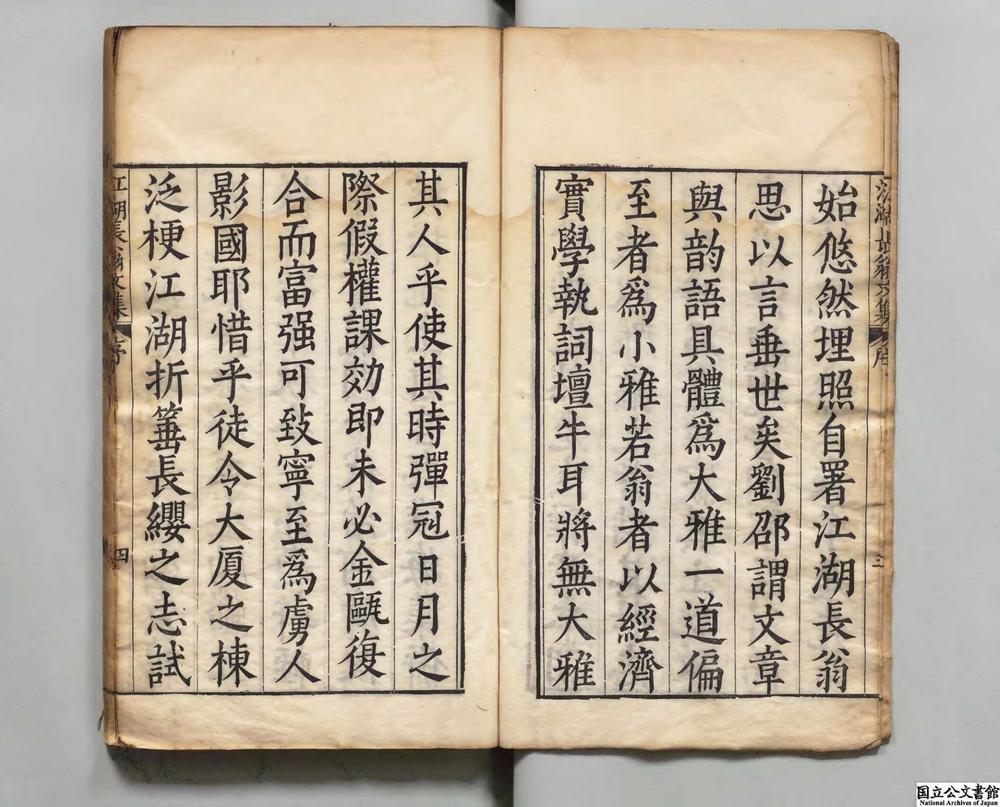 始悠然埋照自署江湖長翁
思以言垂世矣劉邵謂文章
與韵語具體爲大雅一道偏
至者爲小雅若翁者以經濟
實學執詞壇牛耳將無大雅
其人乎使其時彈冠日月之
際假權課効即未必金甌復
合而富强可致寧至爲虜人
影國耶惜乎徒令大厦之棟
泛梗江湖折箠長纓之志試
江湖長翁文集 序 四
国立公文書館
National Archives of Japan